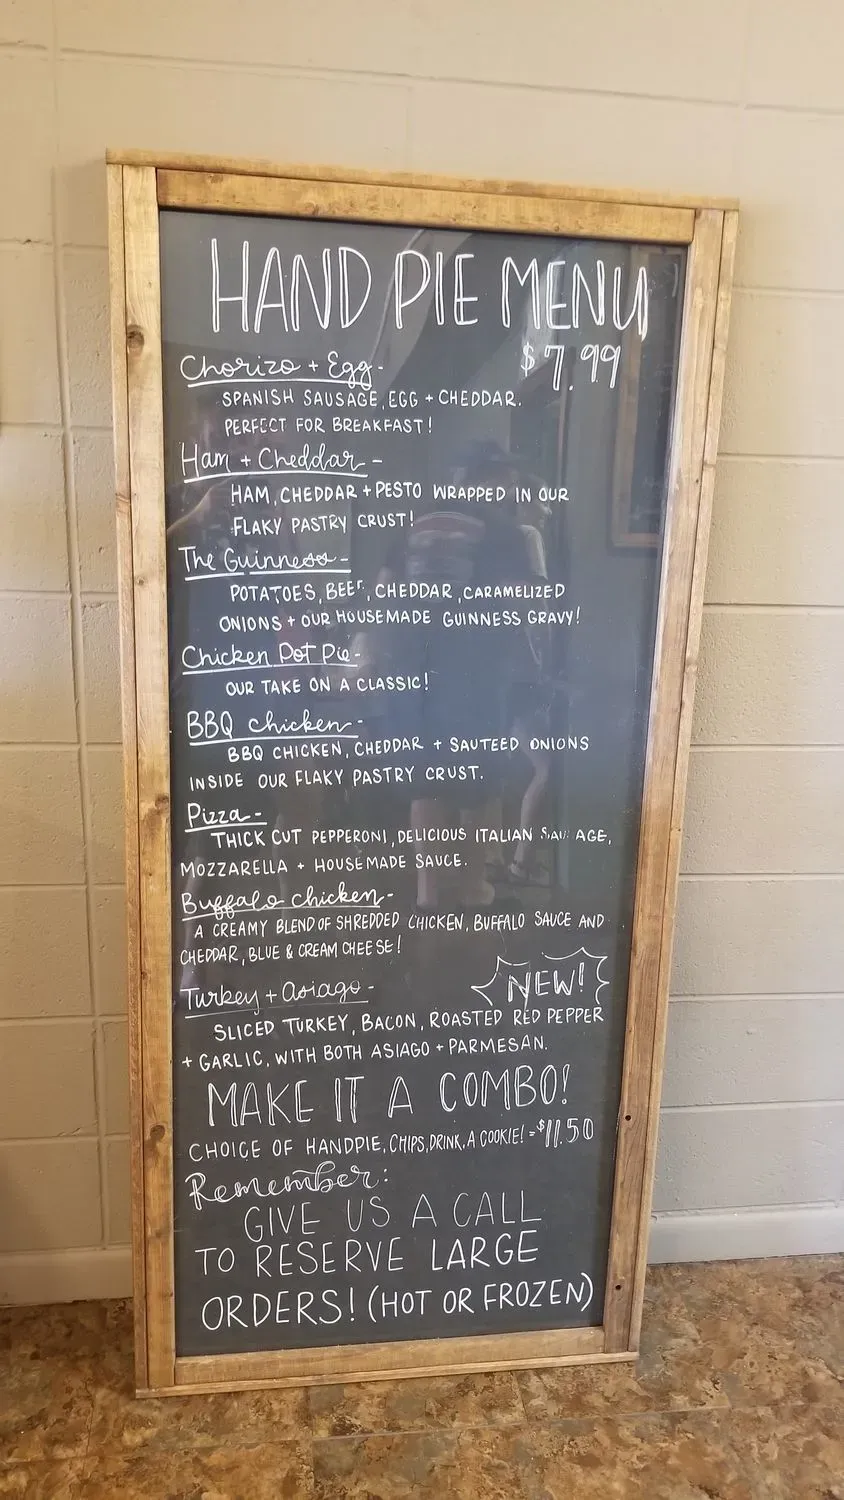 HAND PIE MENU
$7.99
Chorizo + Egg-
SPANISH SAUSAGE, EGG + CHEDDAR.
PERFECT FOR BREAKFAST!
Ham + Cheddar -
HAM, CHEDDAR + PESTO WRAPPED IN OUR
FLAKY PASTRY CRUST!
The Guinness -
POTATOES, BEEF, CHEDDAR, CARAMELIZED
ONIONS + OUR HOUSEMADE GUINNESS GRAVY!
Chicken Pot Pie-
OUR TAKE ON A CLASSIC!
BBQ chicken -
BBQ CHICKEN, CHEDDAR + SAUTEED ONIONS
INSIDE OUR FLAKY PASTRY CRUST.
Pizza -
THICK CUT PEPPERONI, DELICIOUS ITALIAN SAUSAGE,
MOZZARELLA + HOUSEMADE SAUCE.
Buffalo chicken -
A CREAMY BLEND OF SHREDDED CHICKEN, BUFFALO SAUCE AND
CHEDDAR, BLUE & CREAM CHEESE!
Turkey + Asiago -
NEW!
SLICED TURKEY, BACON, ROASTED RED PEPPER
+ GARLIC, WITH BOTH ASIAGO + PARMESAN.
MAKE IT A COMBO!
CHOICE OF HANDPIE, CHIPS, DRINK, A COOKIE! = $11.50
Remember:
GIVE US A CALL
TO RESERVE LARGE
ORDERS! (HOT OR FROZEN)